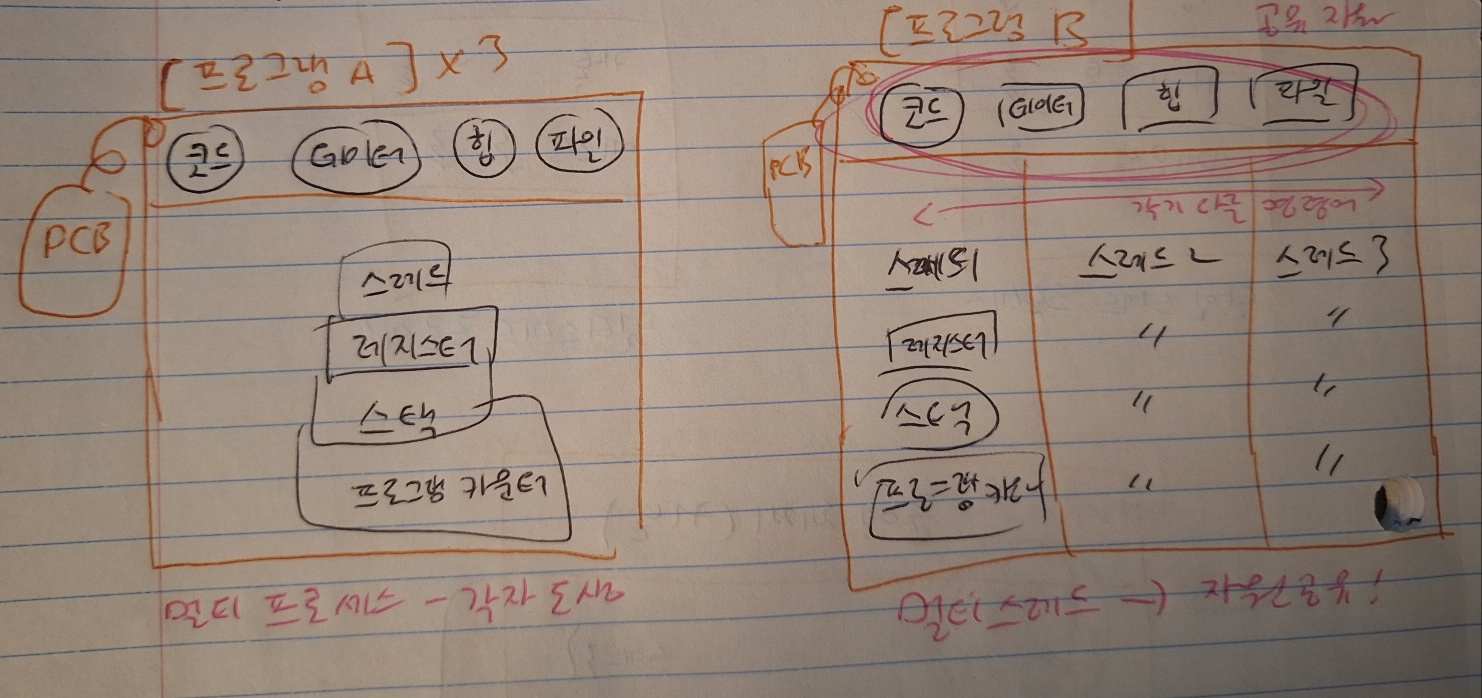 [프로그램 A] X 3
PCB
코드 데이터 힙 파일
스레드
레지스터
스택
프로그램 카운터
멀티 프로세스 - 각자 도생
[프로그램 B]
공유 자원
PCB
코드 데이터 힙 파일
각기 다른
스레드1 스레드 2 스레드 3
레지스터 " "
스택 " "
프로그램 카운터 " "
멀티 스레드 → 자원공유!